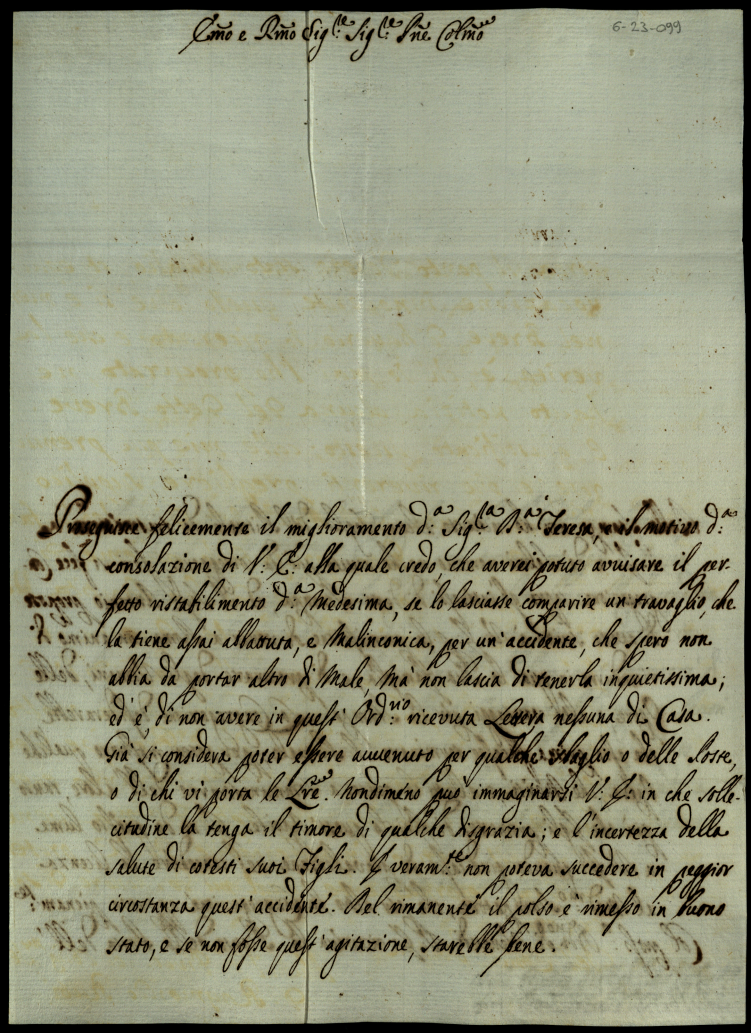 6-23-099
Emo e Rmo Sig.re Sig.re Pñe Colmo
Proseguine felicemente il miglioramento d.a Sig.ra B.a Teresa, e il motivo d.a
consolazione di V: E: alla quale credo, che averei potuto avvisare il per-
fetto ristabilimento d.a Medesima, se lo lasciasse comparire un travaglio, che
la tiene assai abbattuta, e Malinconica, per un'accidente, che spero non
abbia da portar altro di Male, Mà non lascia di tenerla inquietissima;
ed è, di non avere in quest' Ord.rio ricevuta Lettera nessuna di Casa.
Già si considera poter essere avvenuto per qualche sbaglio o delle Poste,
o di chi vi porta le Lre. Nondimeno può immaginarsi V: E: in che solle-
citudine la tenga il timore di qualche disgrazia; e l'incertezza della
salute di cotesti suoi Figli. E veram.te non poteva succedere in peggior
circostanza quest'accidente. Del rimanente il polso è rimesso in buono
stato, e se non fosse quest'agitazione, starebbe bene.